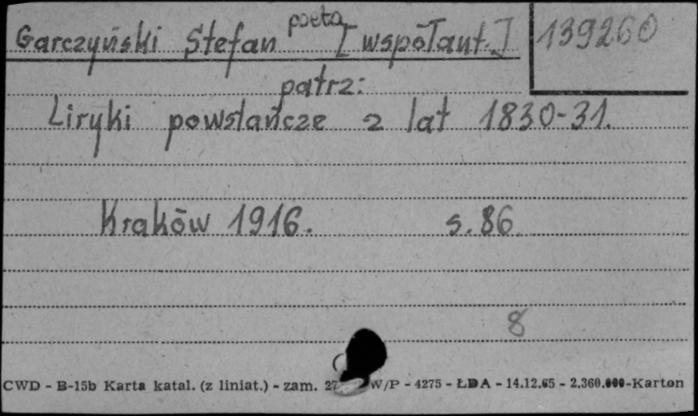 Garczyński Stefan poeta [współaut.] 139260
patrz:
Liryki powstańcze z lat 1830-31.
Kraków 1916. s. 86
8
CWD - B-15b Karta katal. (z liniat.) - zam. 27 W/P - 4275 - ŁDA - 14.12.65 - 2.360.000-Karton